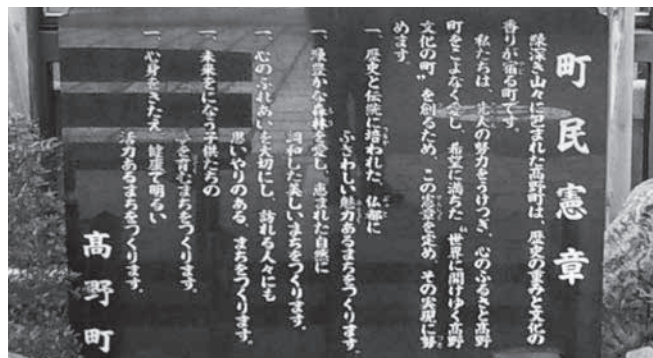 町民憲章
緑深き山々に包まれた髙野町は、歴史の重みと文化の
香りが宿る町です。
私たちは、先人の努力をうけつぎ、心のふるさと髙野
町をこよなく愛し、希望に満ちた“世界に開けゆく髙野
文化の町”を創るため、この憲章を定め、その実現に努
めます。
一、歴史と伝統に培われた、仏都に
ふさわしい魅力あるまちをつくります。
一、緑豊かな森林を愛し、恵まれた自然に
調和した美しいまちをつくります。
一、心のふれあいを大切にし、訪れる人々にも
思いやりのある、まちをつくります。
一、未来をになう子供たちの
を育むまちをつくります。
一、心身をきたえ 健康で明るい
活力あるまちをつくります。
髙野町